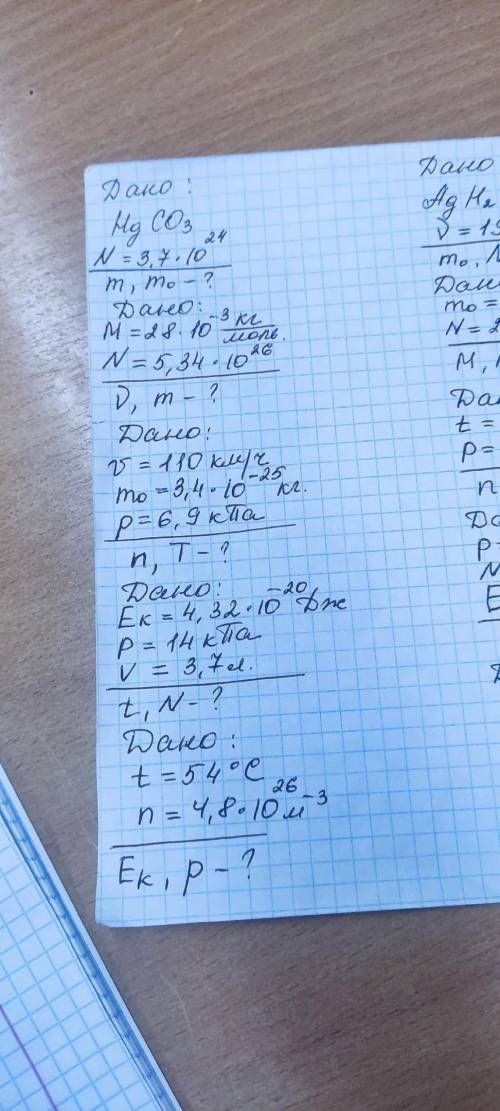 Дано:
HgCO₃
N = 3,7·10²⁴
m, m₀ - ?
Дано:
M = 28·10⁻³ кг/моль.
N = 5,34·10²⁶
ν, m - ?
Дано:
v = 110 км/ч
m₀ = 3,4·10⁻²⁵ кг.
p = 6,9 кПа
n, T - ?
Дано:
Eк = 4,32·10⁻²⁰ Дж
P = 14 кПа
V = 3,7 л.
t, N - ?
Дано:
t = 54°C
n = 4,8·10²⁶ м⁻³
Eк, p - ?
Дано
Ag H₂
ν = 1
m₀, N
Дан
m₀ =
N = 2
M,
Дан
t =
p =
n
Да
p
N
E